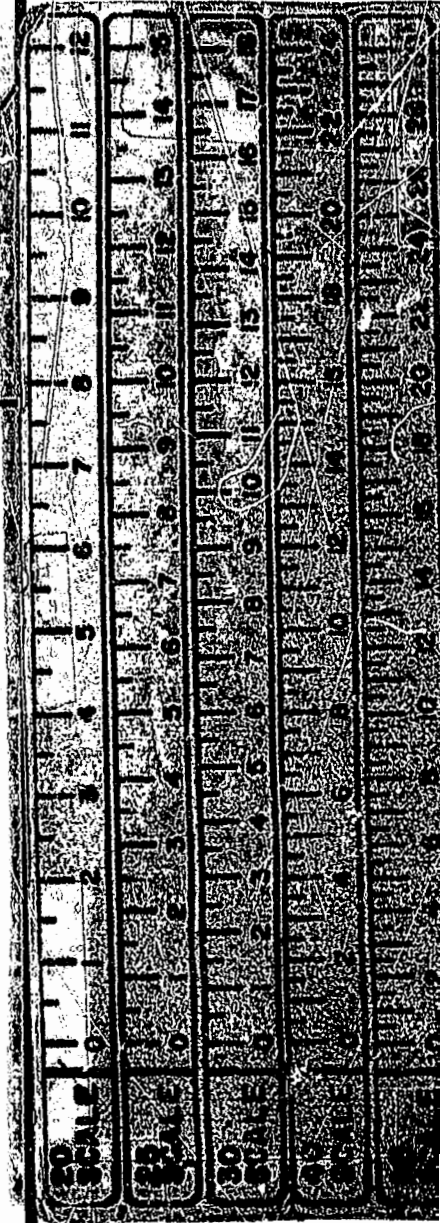 20
SCALE 0 1 2 3 4 5 6 7 8 9 10 11 12
SCALE 0 1 2 3 4 5 6 7 8 9 10 11 12 13 14 15
30
SCALE 0 1 2 3 4 5 6 7 8 9 10 11 12 13 14 15 16 17 18
40
SCALE 0 2 4 6 8 10 12 14 16 18 20 22 24
0 2 4 6 8 10 12 14 16 18 20 22 24 26 28